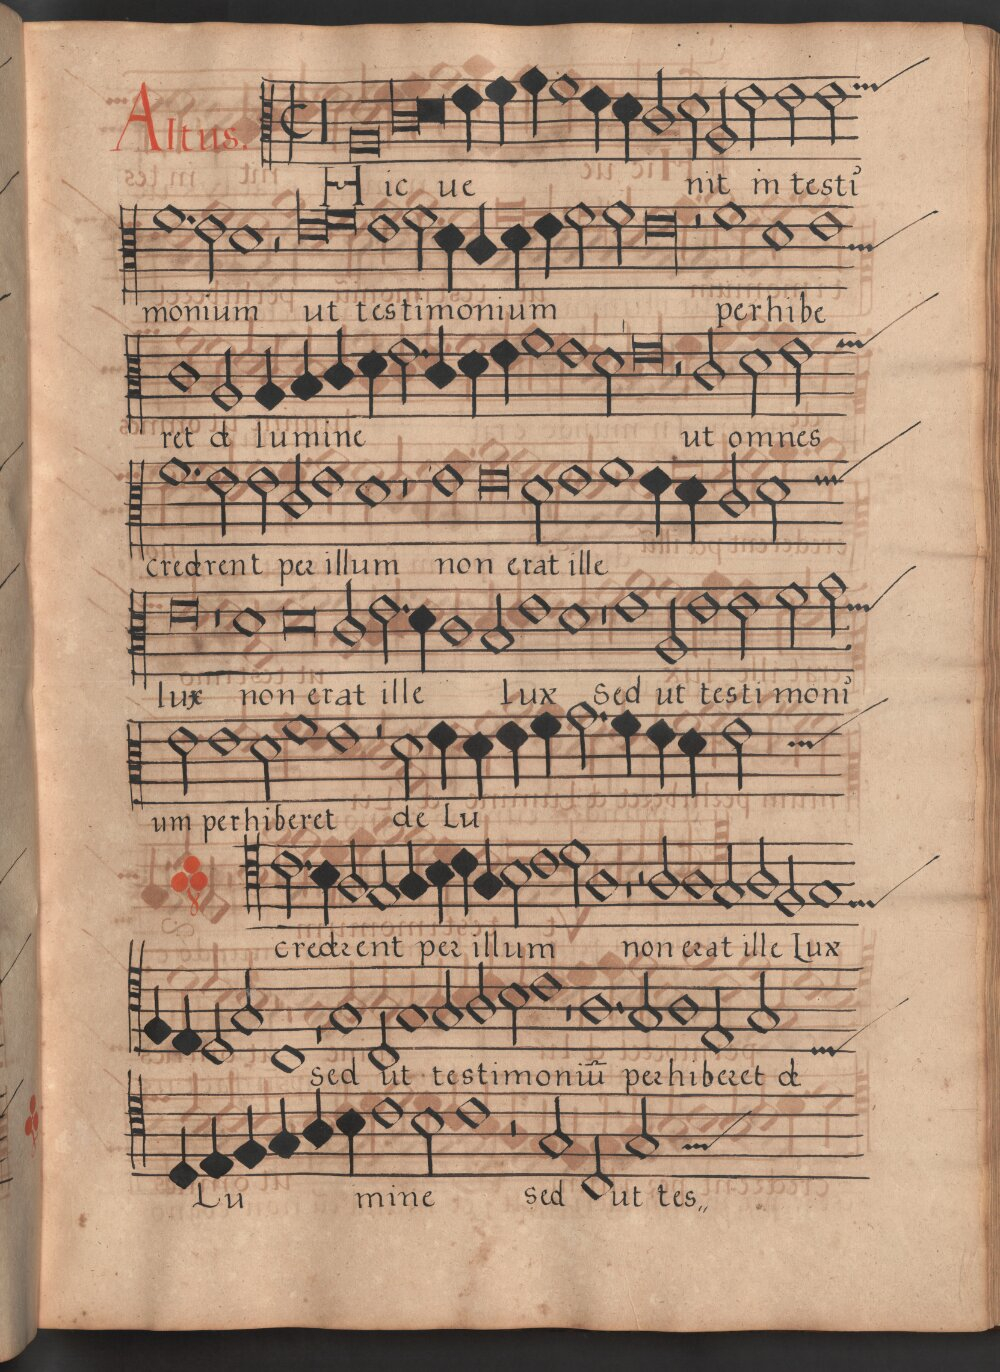 Altus.
Hic ue nit in testi
monium ut testimonium perhibe
ret de lumine ut omnes
crederent per illum non erat ille
lux non erat ille Lux Sed ut testimoni
um perhiberet de Lu
crederent per illum non erat ille Lux
Sed ut testimoniū perhiberet de
Lu mine Sed ut tes,,